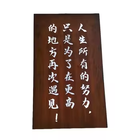 人生所有的努力，
只是为了在更高
的地方再次遇见！